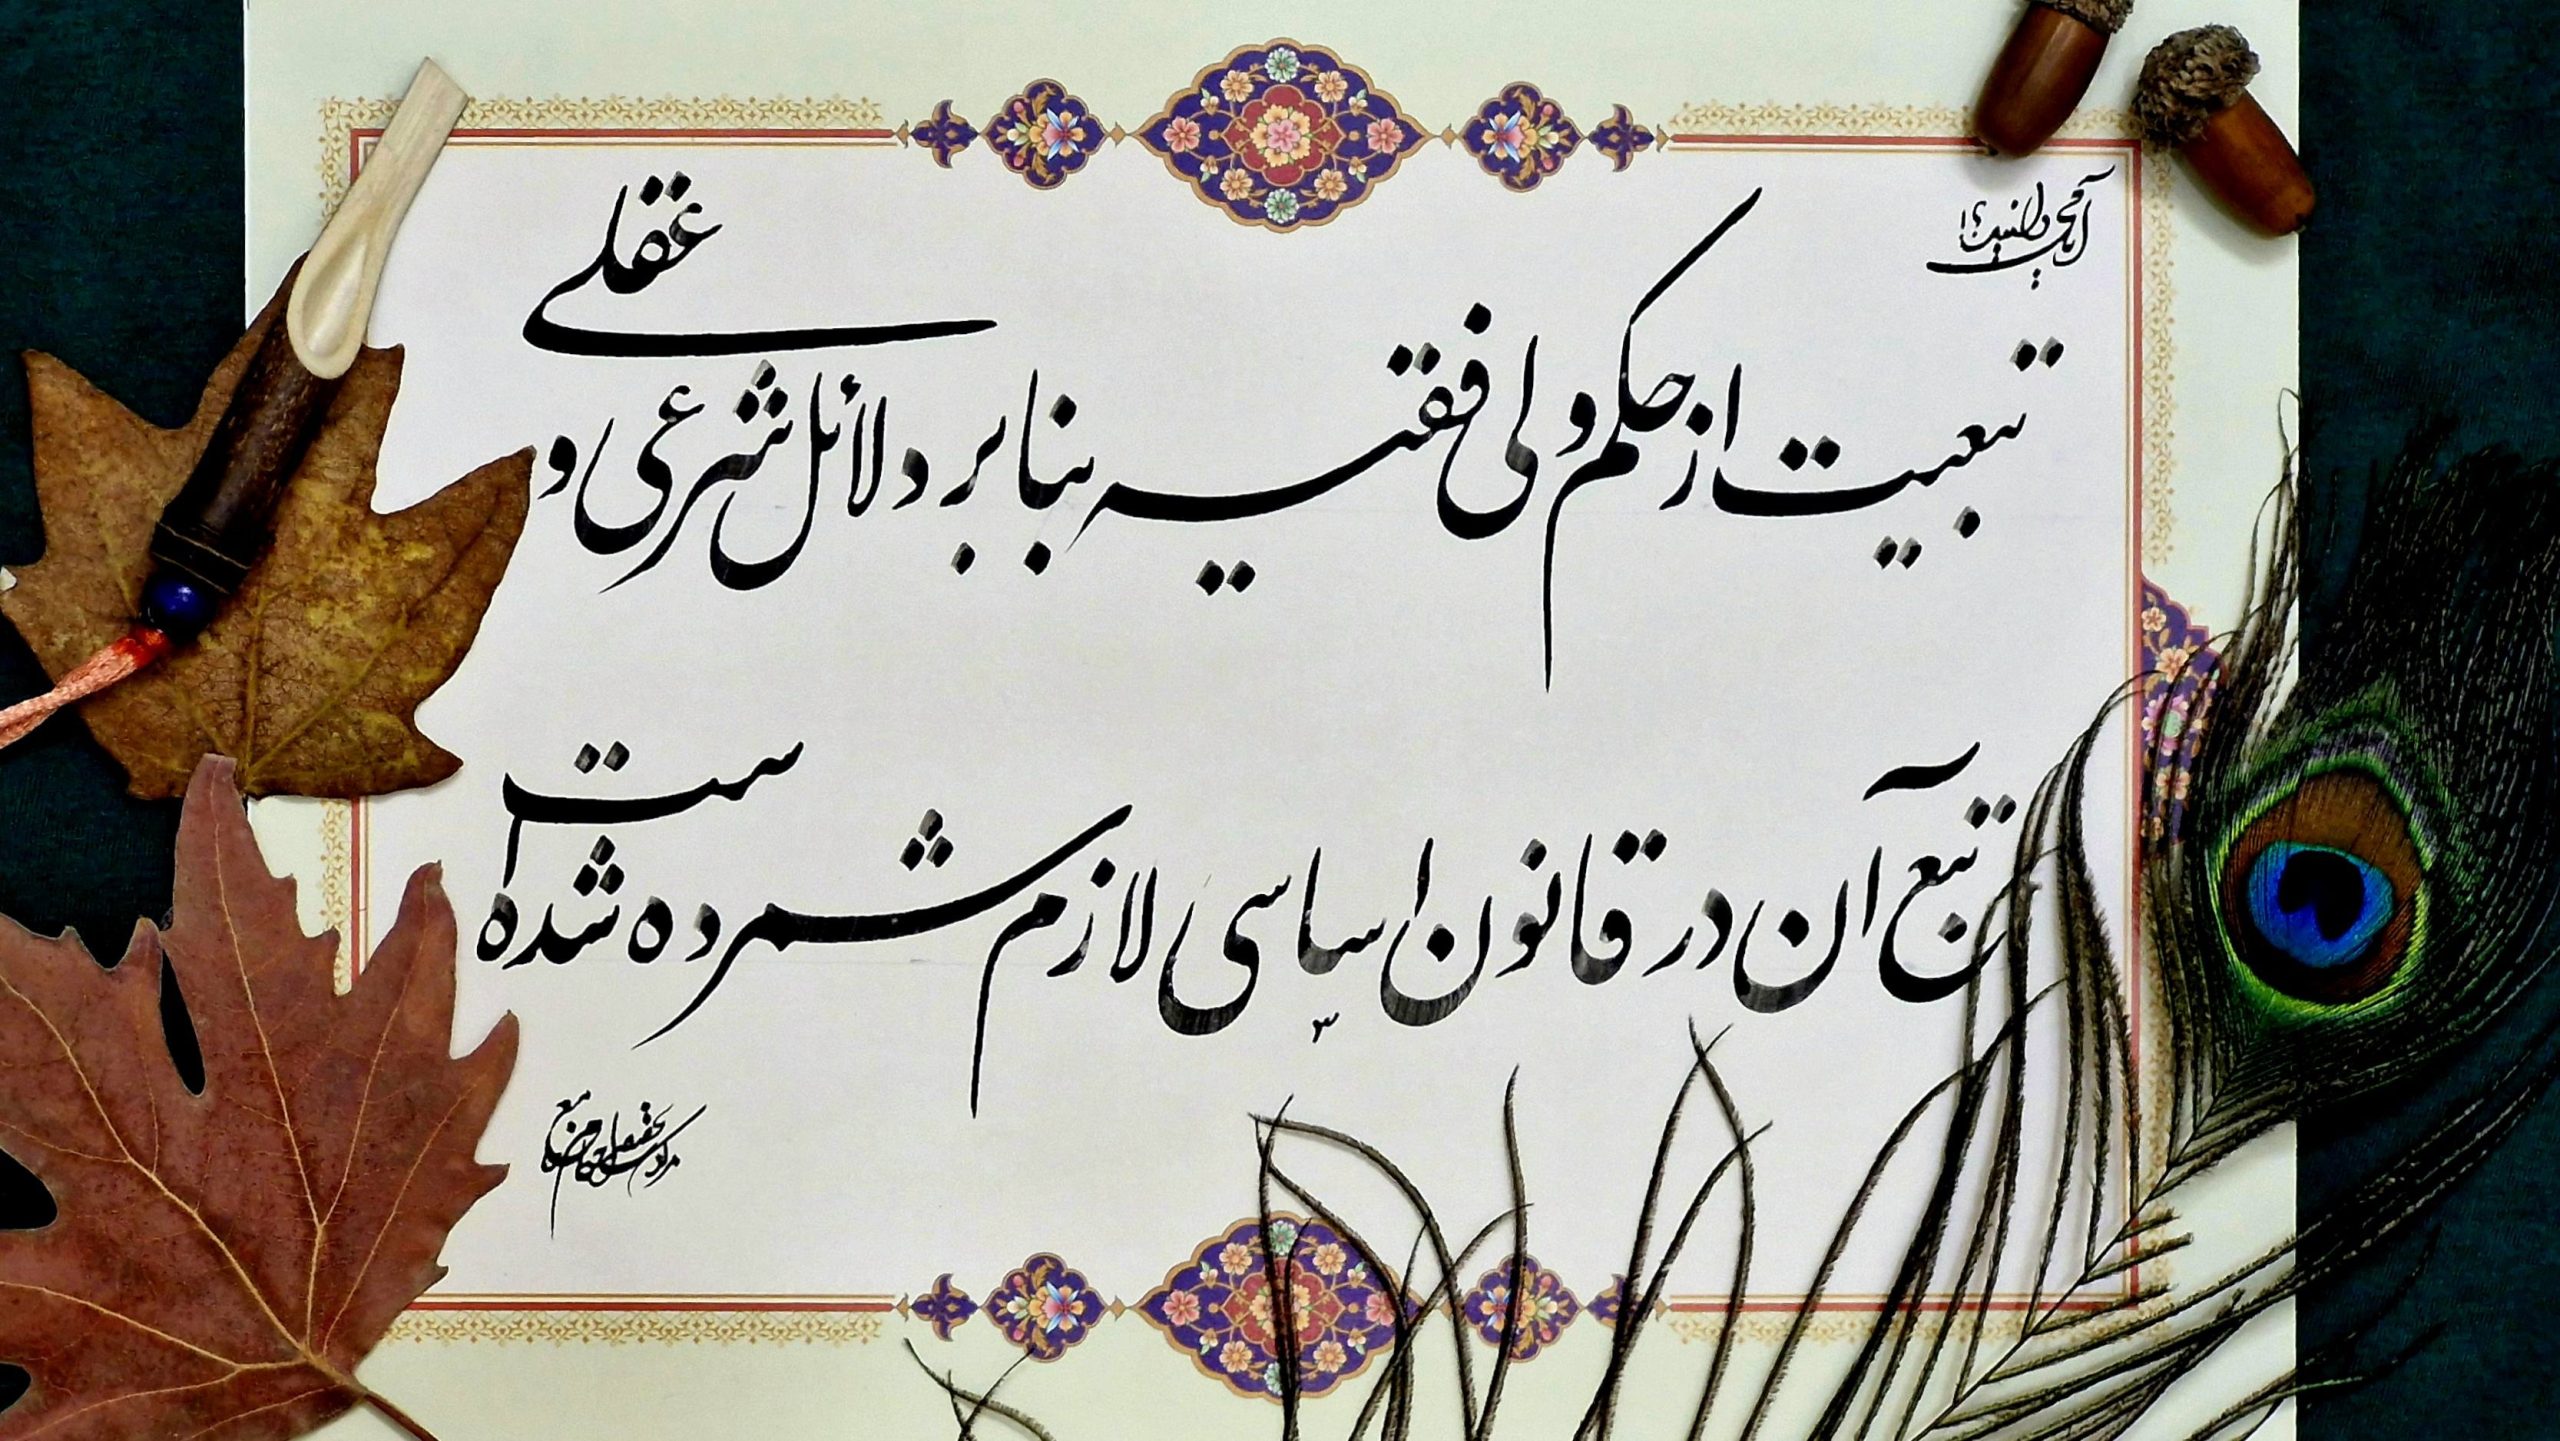 آیا می‌دانید؟!
تبعیت از حکم ولی فقیه بنا بر دلائل شرعی و عقلی
تبع آن در قانون اساسی لازم شمرده شده است